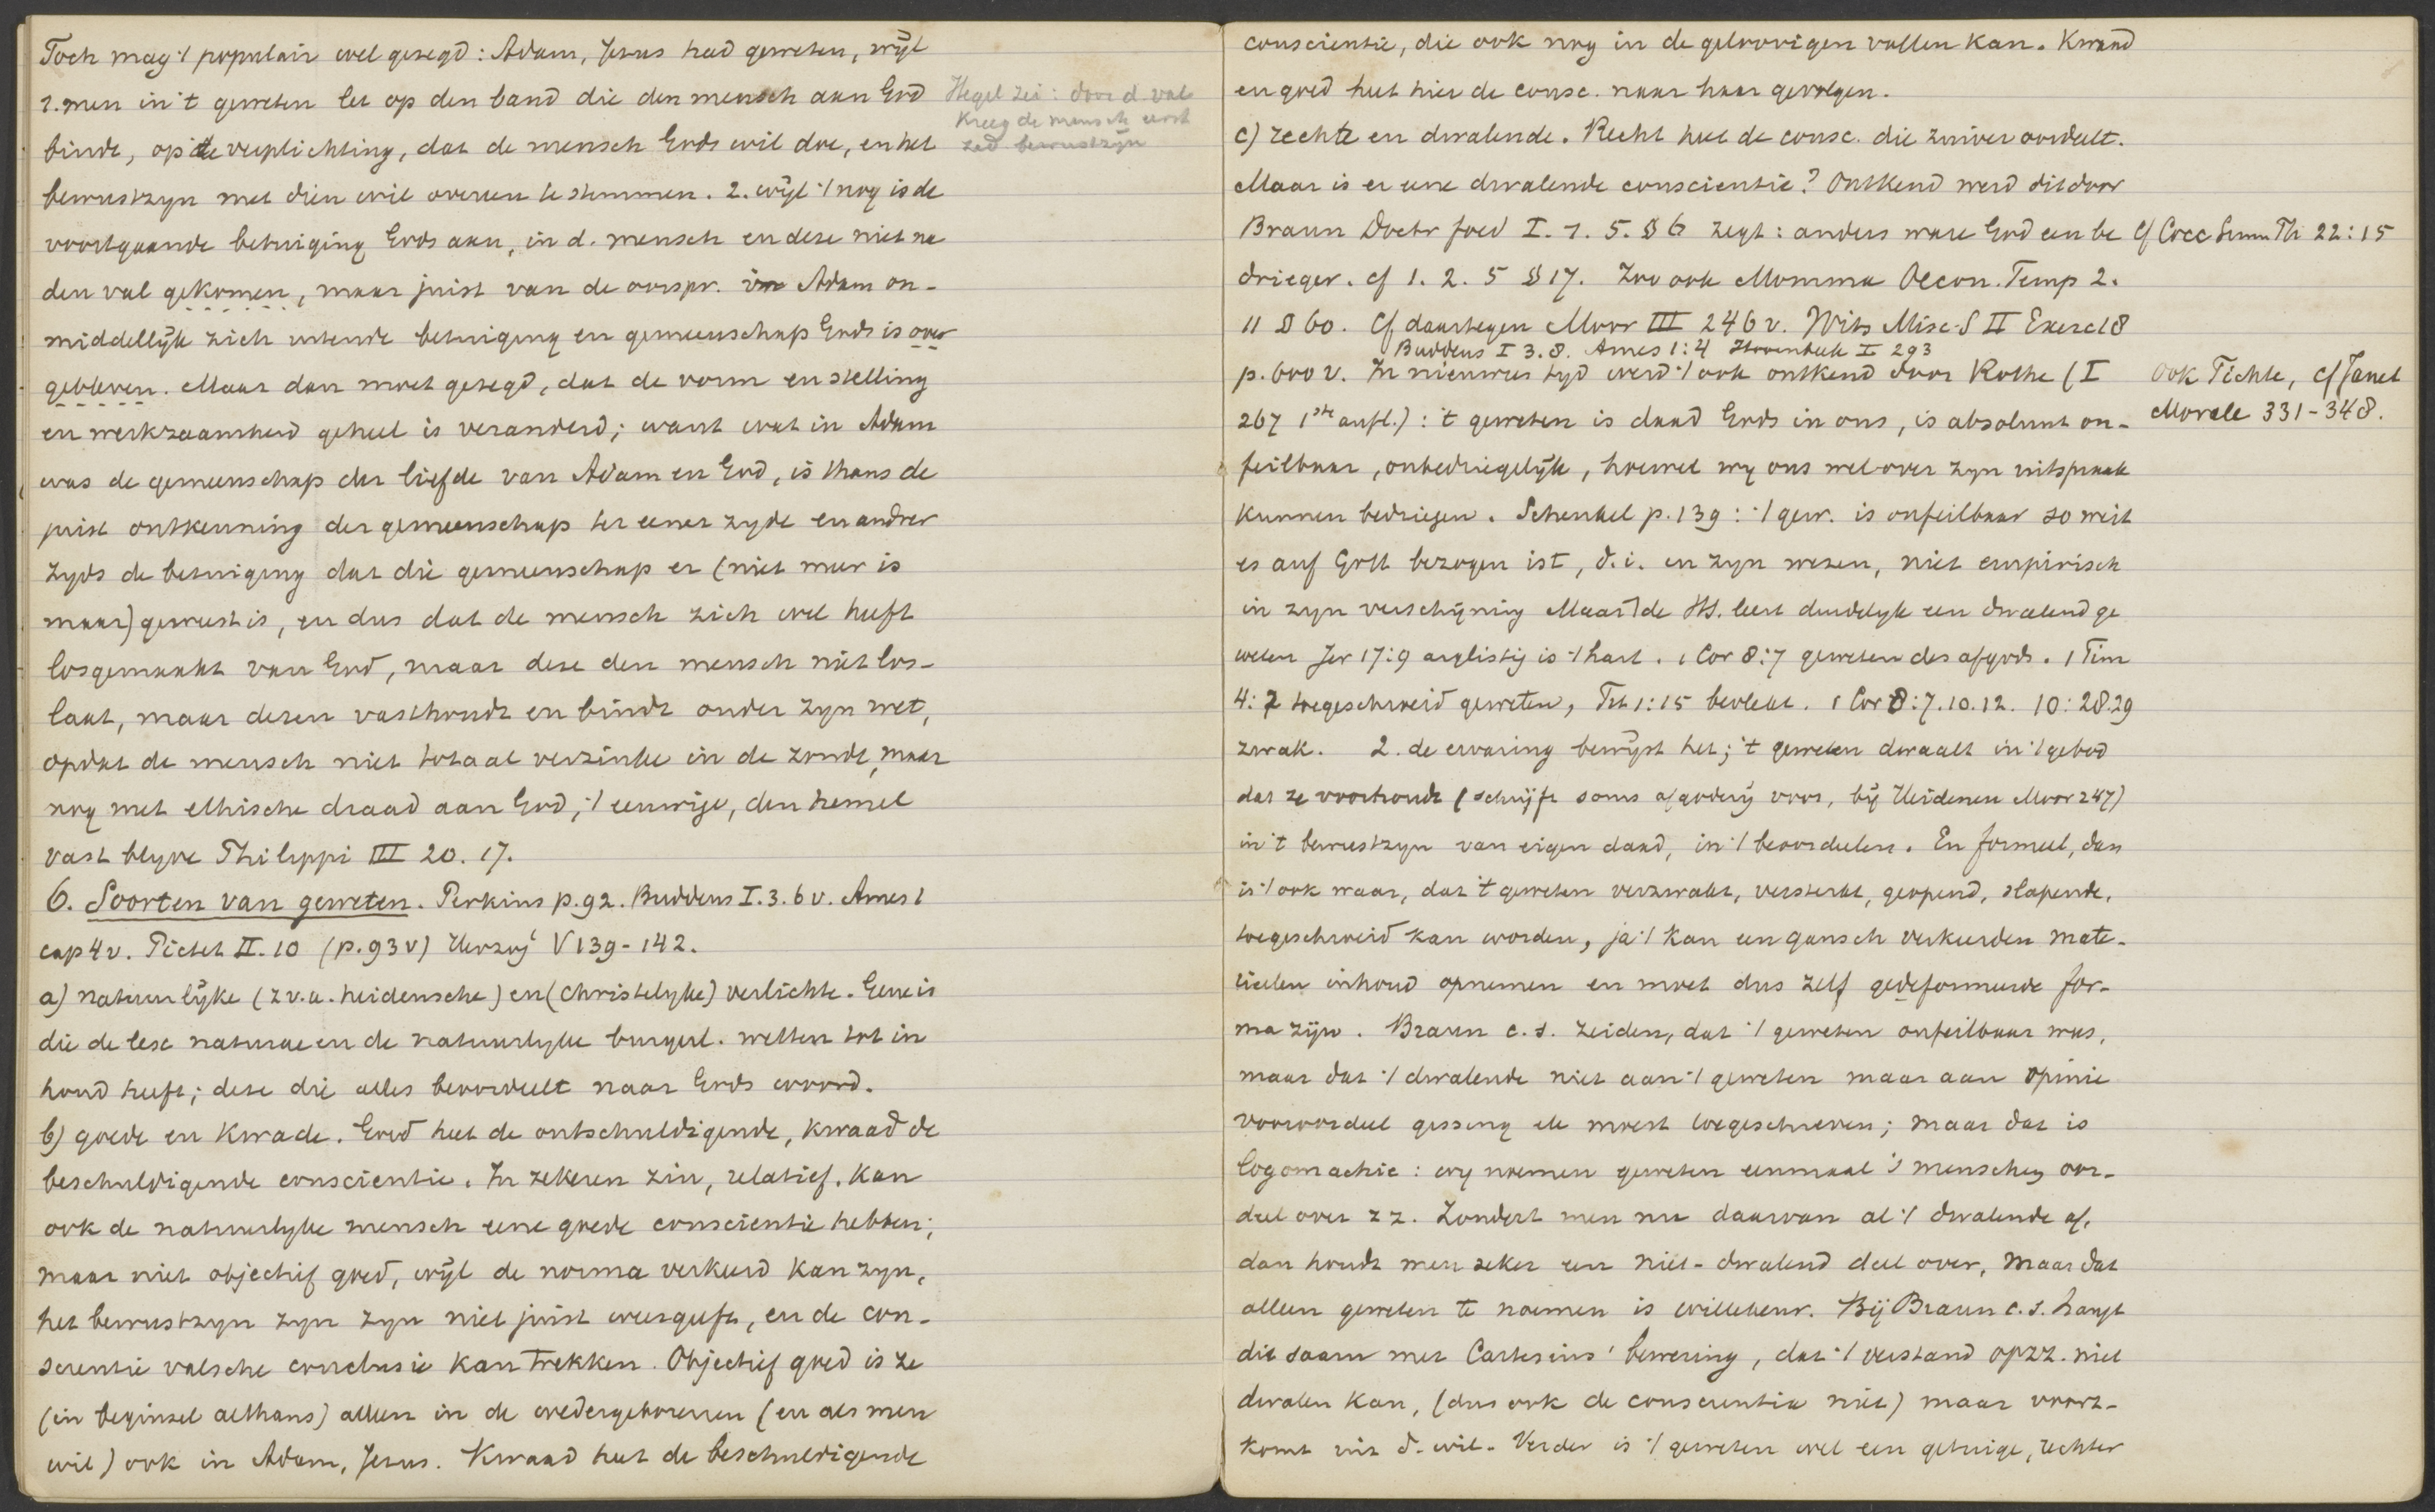 Toch mag 't populair wel gezegd: Adam, Jesus had geweten, wijl
1. men in 't geweten let op den band die den mensch aan God
bindt, op de verplichting, dat de mensch Gods wil doe, en het
bewustzyn met dien wil overeen te stemmen. 2. wijl 't nog is de
voortgaande betuiging Gods aan, in d. mensch en deze niet na
den val gekomen, maar juist van de oorspr. in Adam on-
middellijk zich uitende betuiging en gemeenschap Gods is over
gebleven. Maar dan moet gezegd, dat de vorm en stelling
en werkzaamheid geheel is veranderd; want wat in Adam
was de gemeenschap der liefde van Adam en God, is thans de
juist ontkenning der gemeenschap ter eener zyde en andrer
zyds de betuiging dat die gemeenschap er (niet meer is
maar) geweest is, en dus dat de mensch zich wel heeft
losgemaakt van God, maar deze den mensch niet los-
laat, maar dezen vasthoudt en bindt onder zyn wet,
opdat de mensch niet totaal verzinke in de zonde, maar
nog met ethische draad aan God, 't eeuwige, den hemel
vast blyve Philippi III 20. 17.
6. Soorten van geweten. Perkins p. 92. Buddeus I. 3. 6 v. Ames 1
cap 4 v. Pictet II. 10 (p. 93 v) Herzog' V 139-142.
a) natuurlijke (z.v.a. heidensche) en (christelyke) verlichte. Gene is
die de lex naturae en de natuurlyke burgerl. wetten tot in
houd heeft; deze die alles beoordeelt naar Gods woord.
b) goede en kwade. Goed heet de ontschuldigende, kwaad de
beschuldigende conscientie. In zekeren zin, relatief, kan
ook de natuurlyke mensch eene goede conscientie hebben;
maar niet objectief goed, wijl de norma verkeerd kan zyn,
het bewustzyn zyn zyn niet juist weergeeft, en de con-
scientie valsche conclusie kan trekken. Objectief goed is ze
(in beginsel althans) alleen in de wedergeborenen (en als men
wil) ook in Adam, Jesus. Kwaad heet de beschuldigende
Hegel zei: door d. val
kreeg de mensch eerst
zed bewustzijn
conscientie, die ook nog in de geloovigen vallen kan. Kwaad
en goed heet hier de consc. naar haar gevolgen.
c) rechte en dwalende. Recht heet de consc. die zuiver oordeelt.
Maar is er eene dwalende conscientie? Ontkend werd dit door
Braun Doctr foed I. 1. 5. § 6 zegt: anders ware God een be
drieger. cf 1. 2. 5 § 17. Zoo ook Momma Oecon. Temp 2.
11 § 60. Cf daartegen Moor III 246 v. Wits Misc. S II Exerc 18
Buddeus I 3. 8. Ames 1:4 Hoornbeek I 293
p. 600 v. In nieuwen tyd werd 't ook ontkend door Rothe (I
267 1ste aufl.): 't geweten is daad Gods in ons, is absoluut on-
feilbaar, onbedriegelijk, hoewel wy ons wel over zyn uitspraak
kunnen bedriegen. Schenkel p. 139: 't gew. is onfeilbaar so weit
es auf Gott bezogen ist, d.i. in zyn wezen, niet empirisch
in zyn verschijning Maar] de HS. leert duidelyk een dwalend ge
weten Jer 17:9 arglistig is 't hart. 1 Cor 8:7 geweten des afgods. 1 Tim
4:2 toegeschroeid geweten, Tit 1:15 bevlekt. 1 Cor 8:7.10.12. 10:28.29
zwak. 2. de ervaring bewijst het; 't geweten dwaalt in 't gebod
dat ze voorhoudt (schrijft soms afgoderij voor, bij Heidenen Moor 247)
in 't bewustzyn van eigen daad, in 't beoordeelen. En formeel, dan
is 't ook waar, dat 't geweten verzwakt, versterkt, geopend, slapende,
toegeschroeid kan worden, ja 't kan een gansch verkeerden mate-
rieelen inhoud opnemen en moet dus zelf gedeformeerde for-
ma zijn. Braun c.s. zeiden, dat 't geweten onfeilbaar was,
maar dat 't dwalende niet aan 't geweten maar aan opinie
vooroordeel gissing etc moest toegeschreven; maar dat is
logomachie: wy noemen geweten eenmaal 's menschen oor-
deel over z z. Zondert men nu daarvan al 't dwalende af,
dan houdt men zeker een niet-dwalend deel over, maar dat
alleen geweten te noemen is willekeur. Bij Braun c.s. hangt
dit saam met Cartesius' bewering, dat 't verstand op zz. niet
dwalen kan, (dus ook de conscientie niet) maar voort-
komt uit d. wil. Verder is 't geweten wel een getuige, rechter
Cf Cocc Summ Th 22:15
Ook Fichte, cf Janet
Morale 331-348.